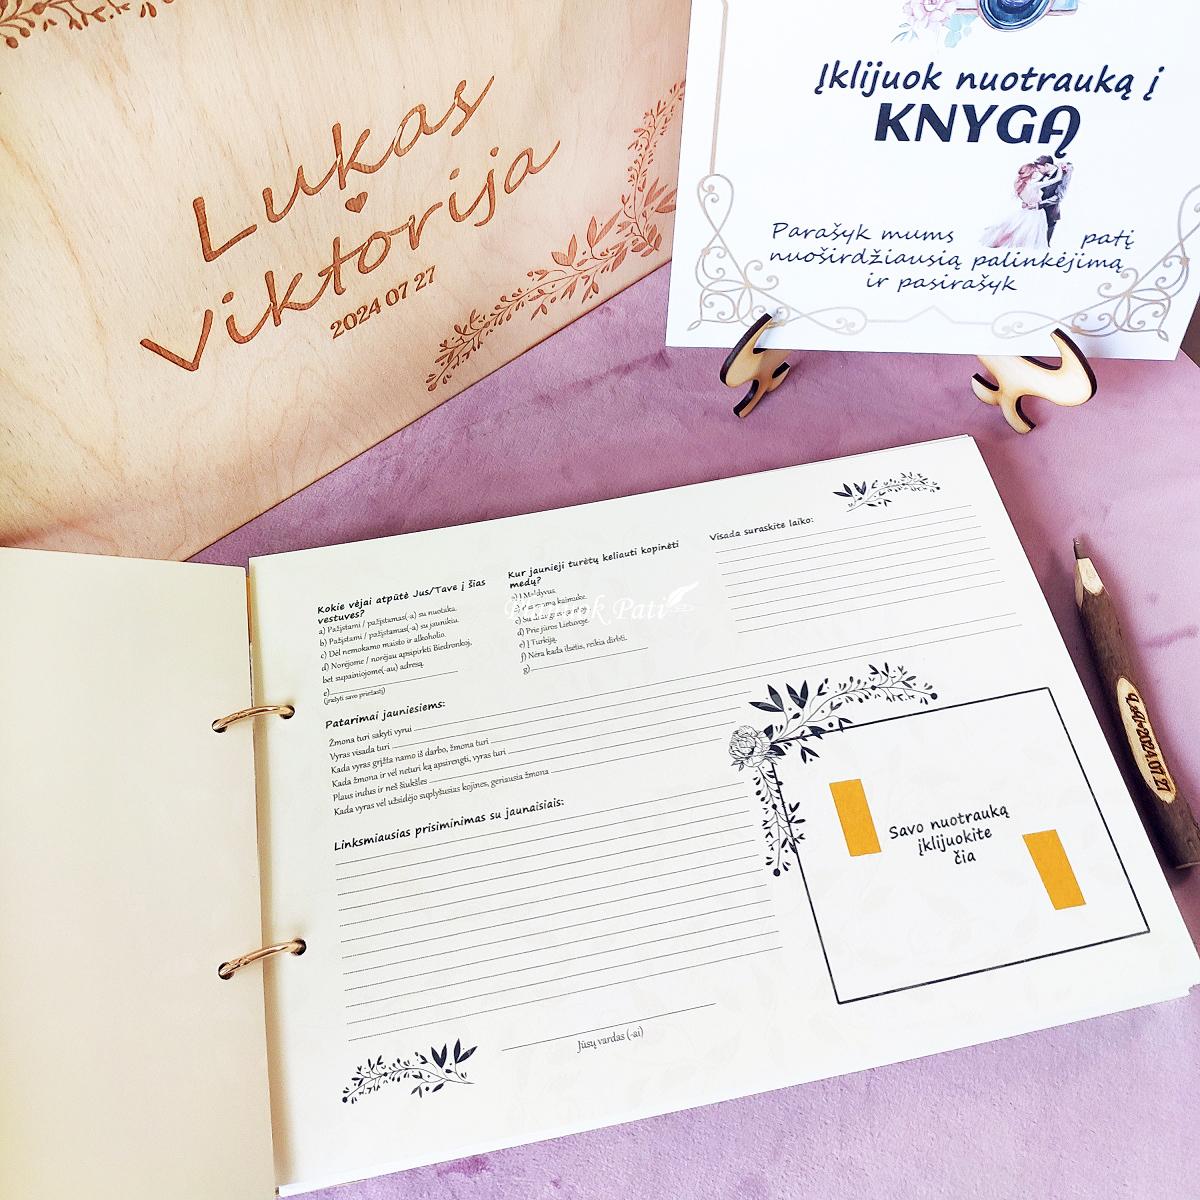 Lukas
Viktorija
2024 07 27
Įklijuok nuotrauką į
KNYGĄ
Parašyk mums patį
nuoširdžiausią palinkėjimą
ir pasirašyk
Kokie vėjai atpūtė Jus/Tave į šias
vestuves?
a) Pažįstami / pažįstamas(-a) su nuotaka.
b) Pažįstami / pažįstamas(-a) su jaunikiu.
c) Dėl nemokamo maisto ir alkoholio.
d) Norėjome / norėjau apsipirkti Biedronkoj,
bet supainiojome(-au) adresą.
e)
(įrašyti savo priežastį)
Kur jaunieji turėtų keliauti kopinėti
medų?
a) Į Maldyvus.
kaimuke.
d) Prie jūros Lietuvoje.
e) Į Turkiją.
f) Nėra kada ilsėtis, reikia dirbti.
g)
Pati
Visada suraskite laiko:
Patarimai jauniesiems:
Žmona turi sakyti vyrui
Vyras visada turi
Kada vyras grįžta namo iš darbo, žmona turi
Kada žmona ir vėl neturi ką apsirengti, vyras turi
Plaus indus ir neš šiukšles
Kada vyras vėl užsidėjo suplyšusias kojines, geriausia žmona
Linksmiausias prisiminimas su jaunaisiais:
Savo nuotrauką
įklijuokite
čia
Jūsų vardas (-ai)